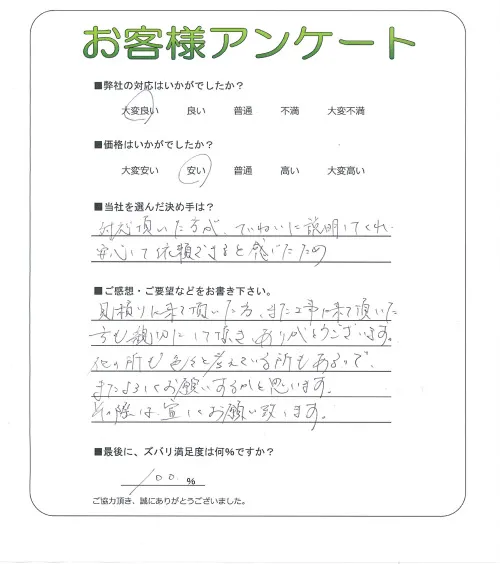 お客様アンケート
■弊社の対応はいかがでしたか？
大変良い 良い 普通 不満 大変不満
■価格はいかがでしたか？
大変安い 安い 普通 高い 大変高い
■当社を選んだ決め手は？
対応頂いた方が、ていねいに説明してくれ
安心して依頼できると感じたため
■ご感想・ご要望などをお書き下さい。
見積りに来て頂いた方、また工事に来て頂いた
方も親切にして頂き、ありがとうございます。
他の所も色々と考えている所もあるので、
またよろしくお願いするかと思います。
その際は、宜しくお願い致します。
■最後に、ズバリ満足度は何％ですか？
100 %
ご協力頂き、誠にありがとうございました。